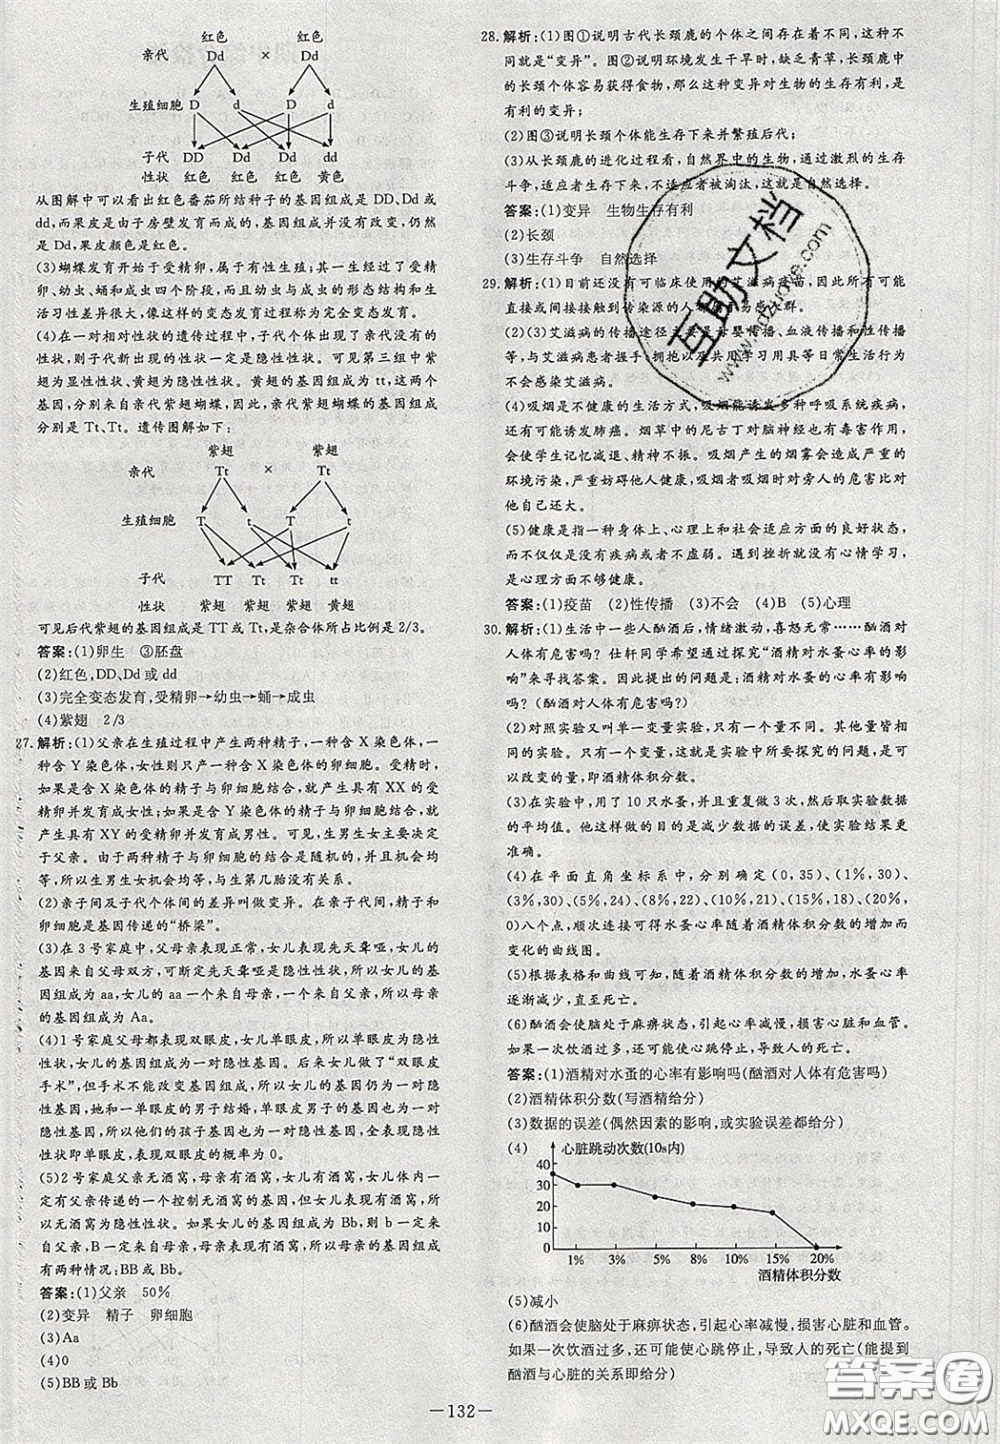 红色 红色
亲代 Dd × Dd
生殖细胞 D d D d
子代 DD Dd Dd dd
性状 红色 红色 红色 黄色
从图解中可以看出红色番茄所结种子的基因组成是 DD、Dd 或
dd,而果皮是由子房壁发育而成的,基因组成并没有改变,仍然
是 Dd,果皮颜色是红色。
(3)蝴蝶发育开始于受精卵,属于有性生殖;其一生经过受精
卵、幼虫、蛹和成虫四个阶段,且幼虫与成虫的形态结构和生
活习性差异很大,像这样的变态发育过程称为完全变态发育。
(4)在一对相对性状的遗传过程中,子代个体出现了亲代没有的
性状,则子代新出现的性状一定是隐性性状。可见第三组中紫
翅为显性性状、黄翅为隐性性状。黄翅的基因组成为 tt,这两个
基因,分别来自亲代紫翅蝴蝶,因此,亲代紫翅蝴蝶的基因组成
分别是 Tt、Tt。遗传图解如下:
紫翅 紫翅
亲代 Tt × Tt
生殖细胞 T t T t
子代 TT Tt Tt tt
性状 紫翅 紫翅 紫翅 黄翅
可见后代紫翅的基因组成是 TT 或 Tt,是杂合体所占比例是 2/3。
答案:(1)卵生 ③胚盘
(2)红色,DD、Dd 或 dd
(3)完全变态发育,受精卵→幼虫→蛹→成虫
(4)紫翅 2/3
27.解析:(1)父亲在生殖过程中产生两种精子,一种含 X 染色体,一
种含 Y 染色体,女性则只产一种含 X 染色体的卵细胞。受精时,
如果是含 X 染色体的精子与卵细胞结合,就产生具有 XX 的受
精卵并发育成女性;如果是含 Y 染色体的精子与卵细胞结合,就
产生具有 XY 的受精卵并发育成男性。可见,生男生女主要决定
于父亲。由于两种精子与卵细胞的结合是随机的,并且机会均
等,所以生男生女机会均等,与生第几胎没有关系。
(2)亲子间及子代个体间的差异叫做变异。在亲子代间,精子和
卵细胞是基因传递的“桥梁”。
(3)在 3 号家庭中,父母亲表现正常,女儿表现先天聋哑,女儿的
基因来自父母双方,可断定先天聋哑是隐性性状,所以女儿的基
因组成为 aa,女儿的 aa 一个来自母亲,一个来自父亲,所以母亲
的基因组成为 Aa。
(4)1 号家庭父母都表现双眼皮,女儿单眼皮,所以单眼皮为隐性
性状,女儿的基因组成为一对隐性基因。后来女儿做了“双眼皮
手术”,但不能改变基因组成,所以女儿的基因仍为一对隐性
基因,她和一单眼皮的男子结婚,单眼皮男子的基因也为一对隐
性基因,所以他们的孩子基因也为一对隐性基因,全表现隐性
性状即单眼皮,故表现双眼皮的概率为 0。
(5)2 号家庭父亲无酒窝,母亲有酒窝,女儿有酒窝,女儿体内一
定有父亲传递的一个控制无酒窝的基因,但却表现有酒窝,所
以无酒窝为隐性性状。如果女儿的基因组成为 Bb,则 b 一定来
自父亲,B 一定来自母亲,母亲表现有酒窝,所以母亲基因组成
有两种情况:BB 或 Bb。
答案:(1)父亲 50%
(2)变异 精子 卵细胞
(3)Aa
(4)0
(5)BB 或 Bb
28.解析:(1)图①说明古代长颈鹿的个体之间存在着不同,这种不
同就是“变异”。图②说明环境发生干旱时,缺乏青草,长颈鹿中
的长颈个体容易获得食物,那么这种变异对生物的生存有利,是
有利的变异;
(2)图③说明长颈个体能生存下来并繁殖后代;
(3)从长颈鹿的进化过程看,自然界中的生物,通过激烈的生存
斗争,适应者生存下来,不适应者被淘汰,这就是自然选择。
答案:(1)变异 生物生存有利
(2)长颈
(3)生存斗争 自然选择
29.解析:(1)目前还没有可临床使用的艾滋病疫苗,因此,所有可能
直接或间接接触到传染源的人都是易感人群。
(2)(3)艾滋病的传播途径主要是母婴传播、血液传播和性传播
等,与艾滋病患者握手、拥抱以及共用学习用具等日常生活行为
不会感染艾滋病。
(4)吸烟是不健康的生活方式,吸烟能诱发多种呼吸系统疾病,
还有可能诱发肺癌。烟草中的尼古丁对脑神经也有毒害作用,
会使学生记忆减退、精神不振。吸烟产生的烟雾会造成严重的
环境污染,严重妨碍他人健康,吸烟者吸烟时对旁人的危害比对
他自己还大。
(5)健康是指一种身体上、心理上和社会适应方面的良好状态,
而不仅仅是没有疾病或者不虚弱。遇到挫折就没有心情学习,
是心理方面不够健康。
答案:(1)疫苗 (2)性传播 (3)不会 (4)B (5)心理
30.解析:(1)生活中一些人酗酒后,情绪激动,喜怒无常……酗酒对
人体有危害吗?任轩同学希望通过探究“酒精对水蚤心率的影
响”来寻找答案。因此提出的问题是:酒精对水蚤的心率有影响
吗?(酗酒对人体有危害吗?)
(2)对照实验又叫单一变量实验,只有一种量不同,其他量都相
同的实验。不同的量,就是实验中所要探究的问题,是可
以改变的量,即酒精体积分数。
(3)在实验中,用了 10 只水蚤,并重复做 3 次,然后取实验数据
的平均值。他来这样做的目的是减少数据的误差,使实验结果更
准确。
(4)在平面直角坐标系中,分别确定(0,35)、(1%,30)、
(3%,30)、(5%,24)、(8%,22)、(10%,21)、(15%,18)、(20%,
0)八个点,顺次连接可得水蚤心率随着酒精体积分数的增加而
变化的曲线图。
(5)根据表格和曲线可知,随着酒精体积分数的增加,水蚤心率
逐渐减少,直至死亡。
(6)酗酒会使脑处于麻痹状态,引起心率减慢,损害心脏和血管。
如果一次饮酒过多,还可能使心跳停止,导致人的死亡。
答案:(1)酒精对水蚤的心率有影响吗(酗酒对人体有危害吗)
(2)酒精体积分数(写酒精给分)
(3)数据的误差(偶然因素的影响,或实验误差都给分)
(4) 心脏跳动次数(10s内)
40
30
20
10
0 1% 3% 5% 8% 10% 15% 20%
酒精体积分数
(5)减小
(6)酗酒会使脑处于麻痹状态,引起心率减慢,损害心脏和血管。
如果一次饮酒过多,还可能使心跳停止,导致人的死亡(能提到
酗酒与心脏的关系即给分)
—132—
互助文档
www.hdzuoye.com
答案圈
MXQE.COM